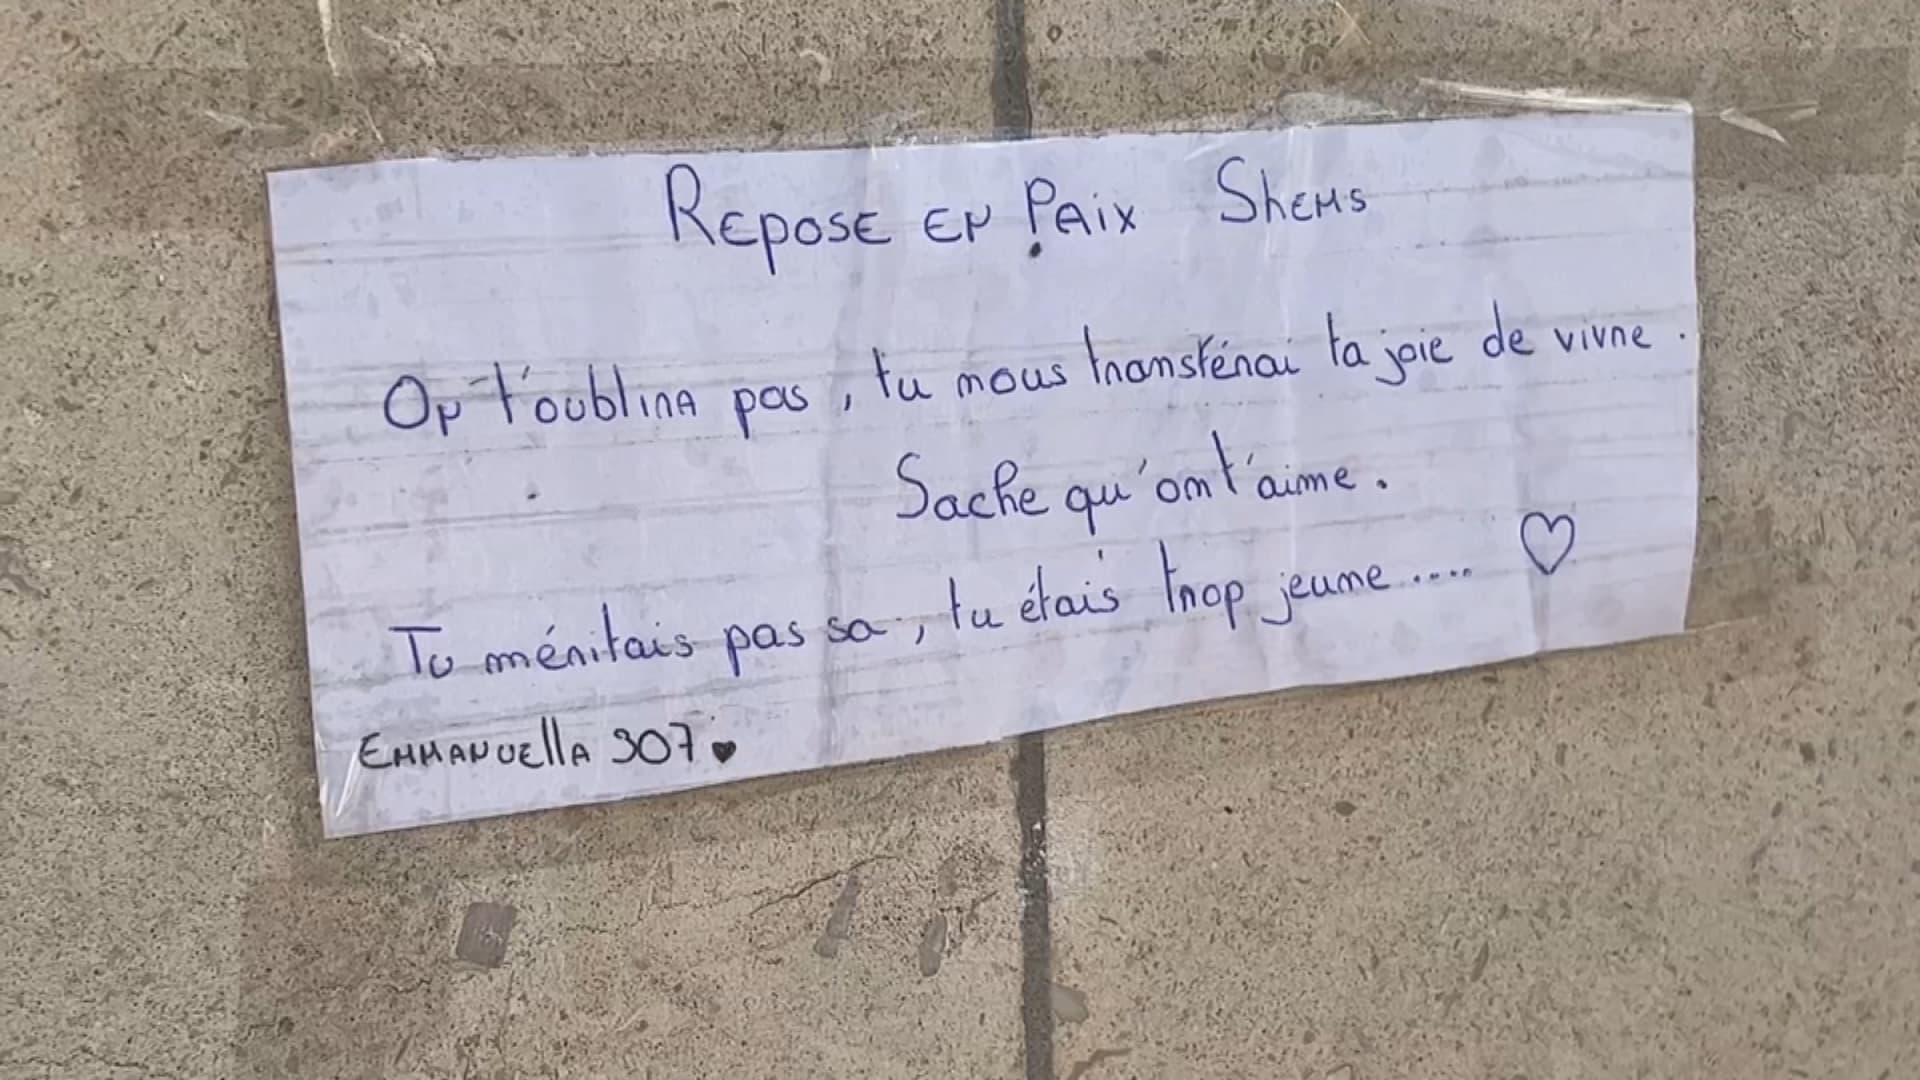 Repose en Paix Shems
On t'oublira pas, tu nous transférai ta joie de vivre.
Sache qu'on t'aime.
Tu méritais pas sa, tu étais trop jeune..... ♡
Emmanuella 307 ♥